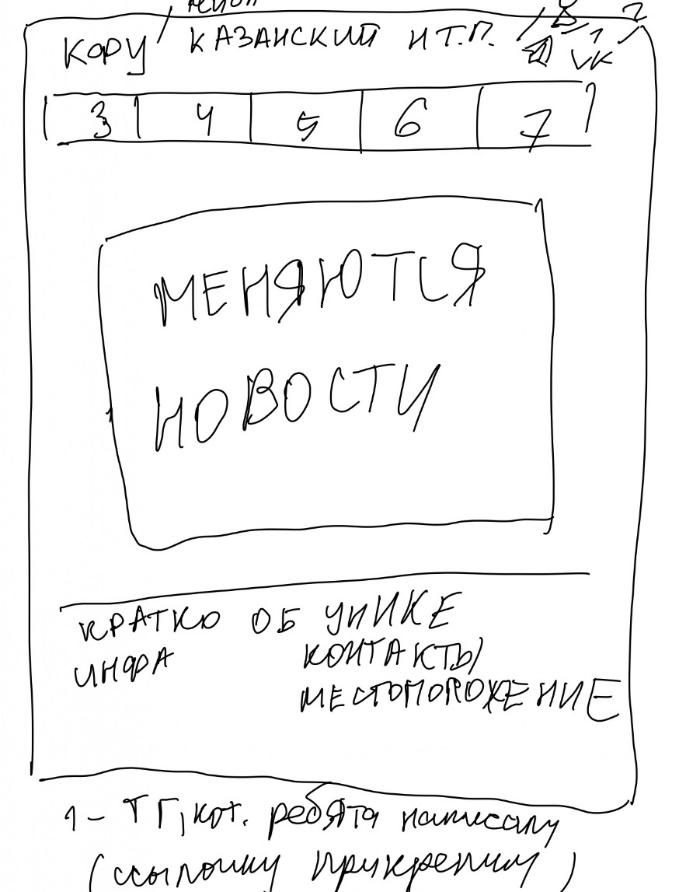 КОРУ / КАЗАНСКИЙ И Т.П. 1 2
VK
3 4 5 6 7
МЕНЯЮТСЯ
НОВОСТИ
КРАТКО ОБ УНИКЕ
ИНФА КОНТАКТЫ
МЕСТОПОРОЖЕНИЕ
1 – ТГ, кот. ребята написалу
(ссылочку прикрепим)